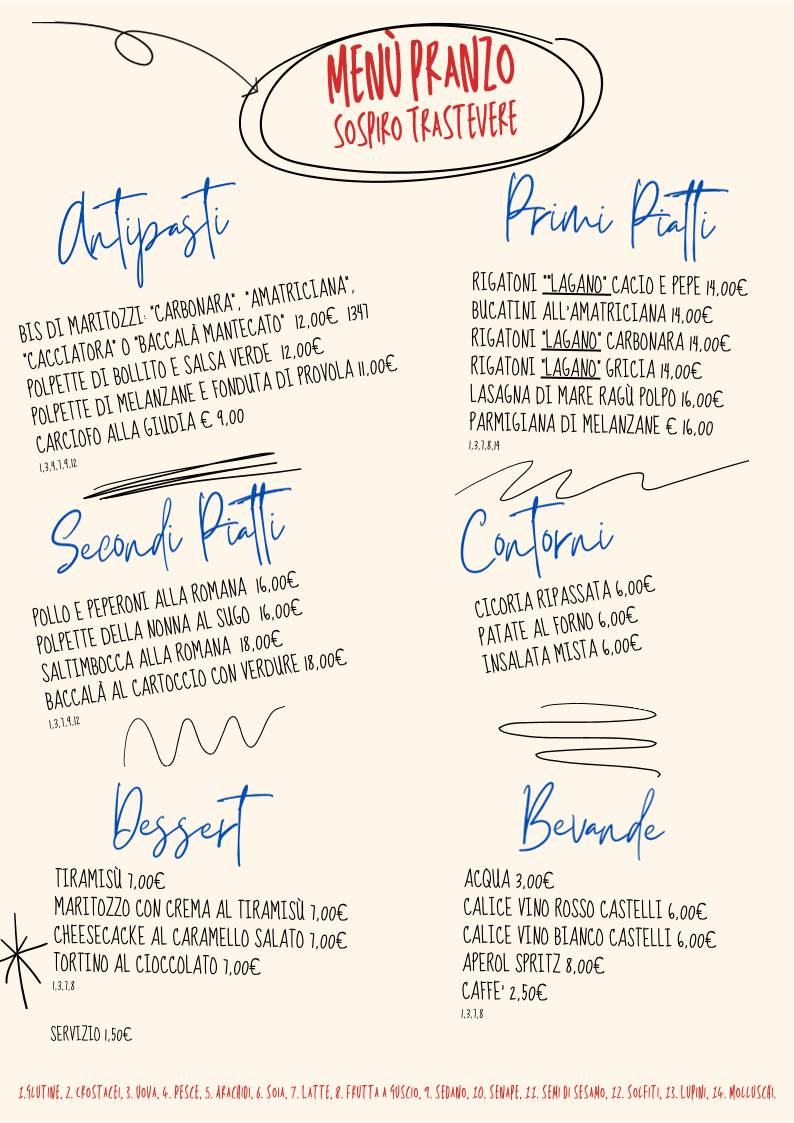 MENÙ PRANZO
SOSPIRO TRASTEVERE
Antipasti
BIS DI MARITOZZI: "CARBONARA", "AMATRICIANA",
"CACCIATORA" O "BACCALÀ MANTECATO" 12,00€ 1347
POLPETTE DI BOLLITO E SALSA VERDE 12,00€
POLPETTE DI MELANZANE E FONDUTA DI PROVOLA 11,00€
CARCIOFO ALLA GIUDIA € 9,00
1,3,4,7,9,12
Primi Piatti
RIGATONI ""LAGANO" CACIO E PEPE 14,00€
BUCATINI ALL'AMATRICIANA 14,00€
RIGATONI "LAGANO" CARBONARA 14,00€
RIGATONI "LAGANO" GRICIA 14,00€
LASAGNA DI MARE RAGÙ POLPO 16,00€
PARMIGIANA DI MELANZANE € 16,00
1,3,7,8,14
Secondi Piatti
POLLO E PEPERONI ALLA ROMANA 16,00€
POLPETTE DELLA NONNA AL SUGO 16,00€
SALTIMBOCCA ALLA ROMANA 18,00€
BACCALÀ AL CARTOCCIO CON VERDURE 18,00€
1,3,7,9,12
Contorni
CICORIA RIPASSATA 6,00€
PATATE AL FORNO 6,00€
INSALATA MISTA 6,00€
Dessert
TIRAMISÙ 7,00€
MARITOZZO CON CREMA AL TIRAMISÙ 7,00€
CHEESECACKE AL CARAMELLO SALATO 7,00€
TORTINO AL CIOCCOLATO 7,00€
1,3,7,8
SERVIZIO 1,50€
Bevande
ACQUA 3,00€
CALICE VINO ROSSO CASTELLI 6,00€
CALICE VINO BIANCO CASTELLI 6,00€
APEROL SPRITZ 8,00€
CAFFE' 2,50€
1,3,7,8
1.GLUTINE, 2. CROSTACEI, 3. UOVA, 4. PESCE, 5. ARACHIDI, 6. SOIA, 7. LATTE, 8. FRUTTA A GUSCIO, 9. SEDANO, 10. SENAPE, 11. SEMI DI SESAMO, 12. SOLFITI, 13. LUPINI, 14. MOLLUSCHI.